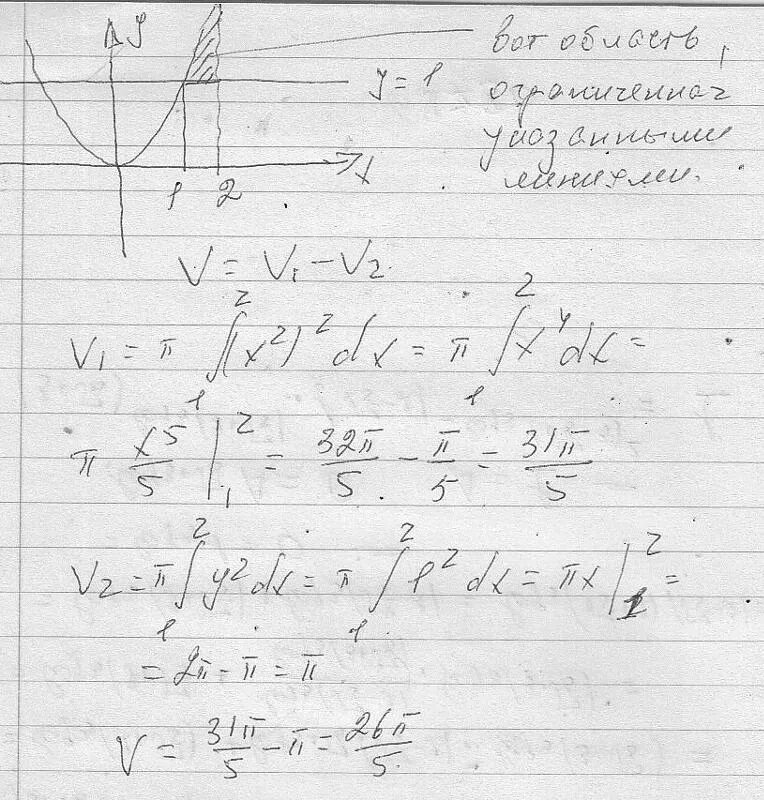 y
вот область,
y = 1
ограниченная
указанными
линиями.
x
1 2
V = V₁ − V₂
V₁ = π ∫₁² (x²)² dx = π ∫₁² x⁴ dx =
π x⁵/5 |₁² = 32π/5 − π/5 = 31π/5
V₂ = π ∫₁² y² dx = π ∫₁² 1² dx = πx |₁² =
= 2π − π = π
V = 31π/5 − π = 26π/5.